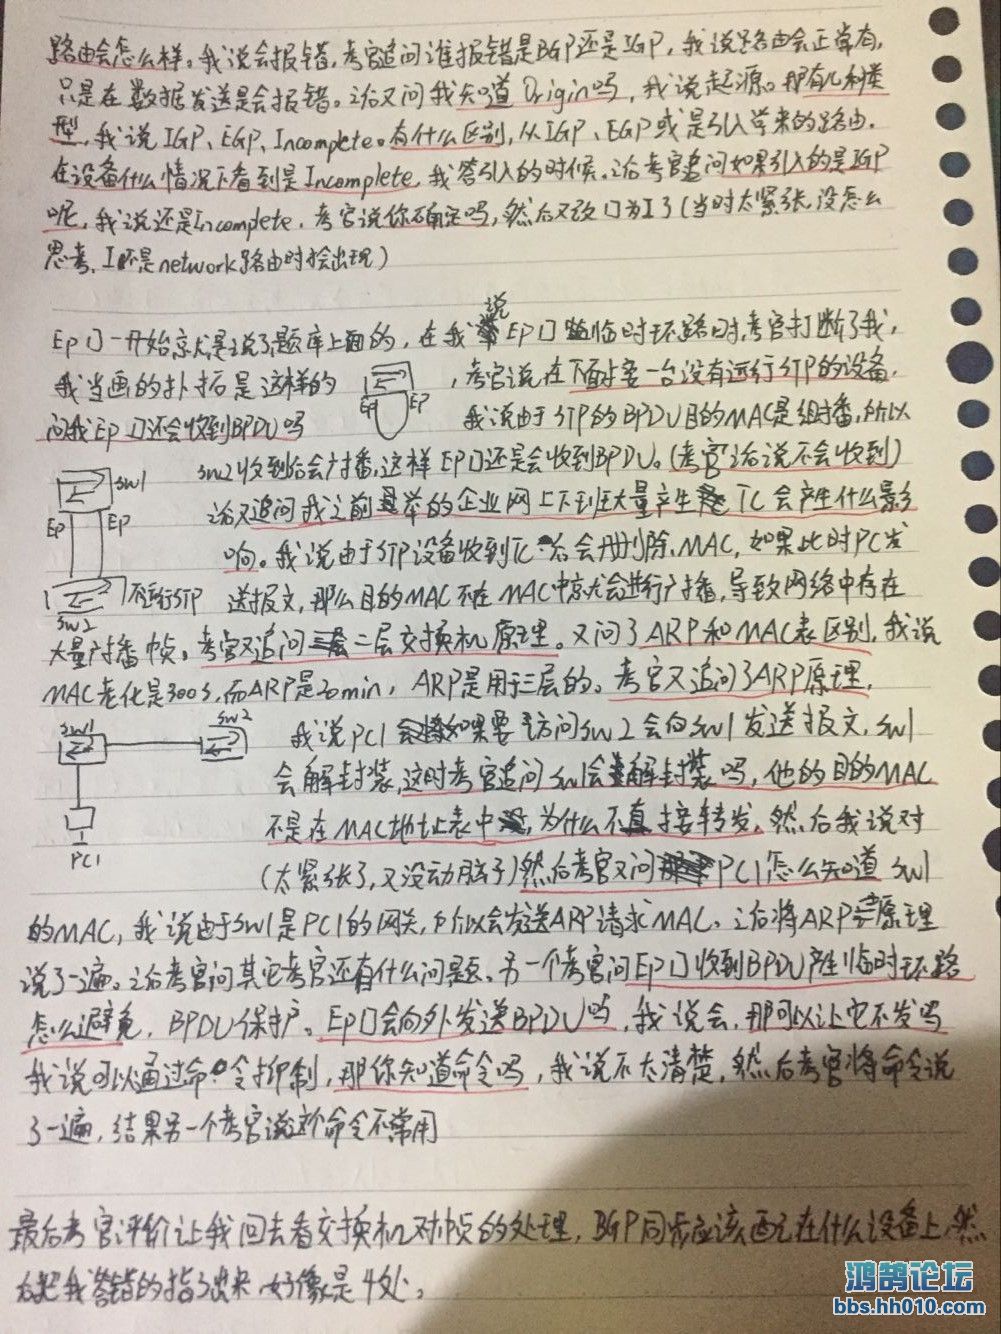 路由会怎么样。我说会报错,考官追问谁报错是BGP还是IGP,我说路由会正常有,
只是在数据发送是会报错。之后又问我知道Origin吗,我说起源。那有几种类
型,我说IGP、EGP、Incomplete。有什么区别,从IGP、EGP或是引入学来的路由.
在设备什么情况下看到是Incomplete,我答引入的时候.之后考官追问如果引入的是IGP
呢,我说还是Incomplete.考官说你确定吗,然后又改口为I了(当时太紧张,没怎么
思考,I不是network路由时才会出现)
EP口一开始就是说了题库上面的,在我说EP口临时环路时,考官打断了我,
我当画的扑拓是这样的 EP EP ,考官说在下面接一台没有运行STP的设备.
问我EP口还会收到BPDU吗 我说由于STP的BPDU目的MAC是组播,所以
SW1 SW2收到后会广播,这样EP口还是会收到BPDU。(考官之后说不会收到)
EP EP 之后又追问我之前举的企业网上下班大量产生TC会产生什么影
响。我说由于STP设备收到TC后会删除MAC,如果此时PC发
不运行STP 送报文,那么目的MAC不在MAC中就会进行广播,导致网络中存在
SW2
大量广播帧。考官又追问二层交换机原理。又问了ARP和MAC表区别,我说
MAC老化是300s,而ARP是20min,ARP是用于三层的。考官又追问了ARP原理,
SW1 SW2 我说PC1如果要访问SW2会向SW1发送报文,SW1
会解封装,这时考官追问SW1会解封装吗,他的目的MAC
不是在MAC地址表中,为什么不直接转发。然后我说对
PC1 (太紧张了,又没动脑子)然后考官又问PC1怎么知道SW1
的MAC,我说由于SW1是PC1的网关,所以会发送ARP请求MAC。之后将ARP原理
说了一遍。之后考官问其它考官还有什么问题。另一个考官问EP口收到BPDU产生临时环路
怎么避免,BPDU保护。EP口会向外发送BPDU吗,我说会,那可以让它不发吗
我说可以通过命令抑制,那你知道命令吗,我说不太清楚,然后考官将命令说
了一遍,结果另一个考官说这个命令不常用
最后考官评价让我回去看交换机对帧的处理,BGP同步应该配在什么设备上,然
后把我答错的指了出来 好像是4处。
鸿鹄论坛
bbs.hh010.com